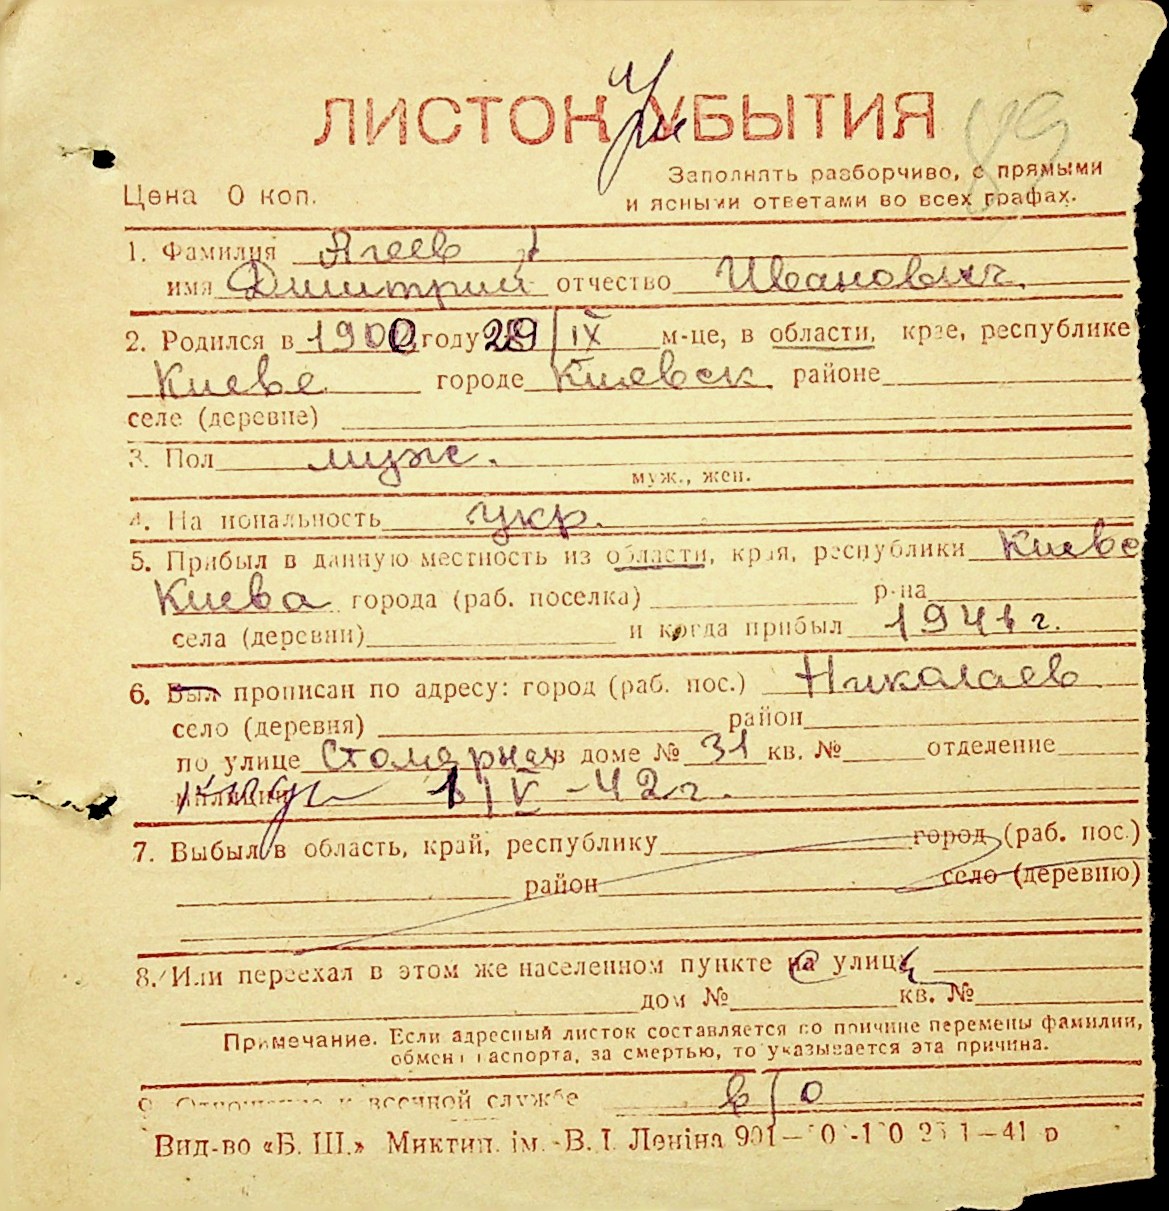 ЛИСТОК УБЫТИЯ
89
Цена 0 коп.
Заполнять разборчиво, с прямыми
и ясными ответами во всех графах.
1. Фамилия Агеев
имя Дмитрий отчество Иванович.
2. Родился в 1900 году 29/IX м-це, в области, крае, республике
Киеве городе Киевск районе
селе (деревне)
3. Пол муж.
муж., жен.
4. Национальность укр.
5. Прибыл в данную местность из области, края, республики Киевс
Киева города (раб. поселка) р-на
села (деревни) и когда прибыл 1941 г.
6. Был прописан по адресу: город (раб. пос.) Николаев
село (деревня) район
по улице Столярная в доме № 31 кв. № отделение
милиции 1/IV-42 г.
7. Выбыл в область, край, республику город (раб. пос.)
район село (деревню)
8. Или переехал в этом же населенном пункте на улицу
дом № кв. №
Примечание. Если адресный листок составляется по причине перемены фамилии,
обмена паспорта, за смертью, то указывается эта причина.
9. Отношение к военной службе в/о
Вид-во «Б. Ш.» Миктип. ім. В. І. Леніна